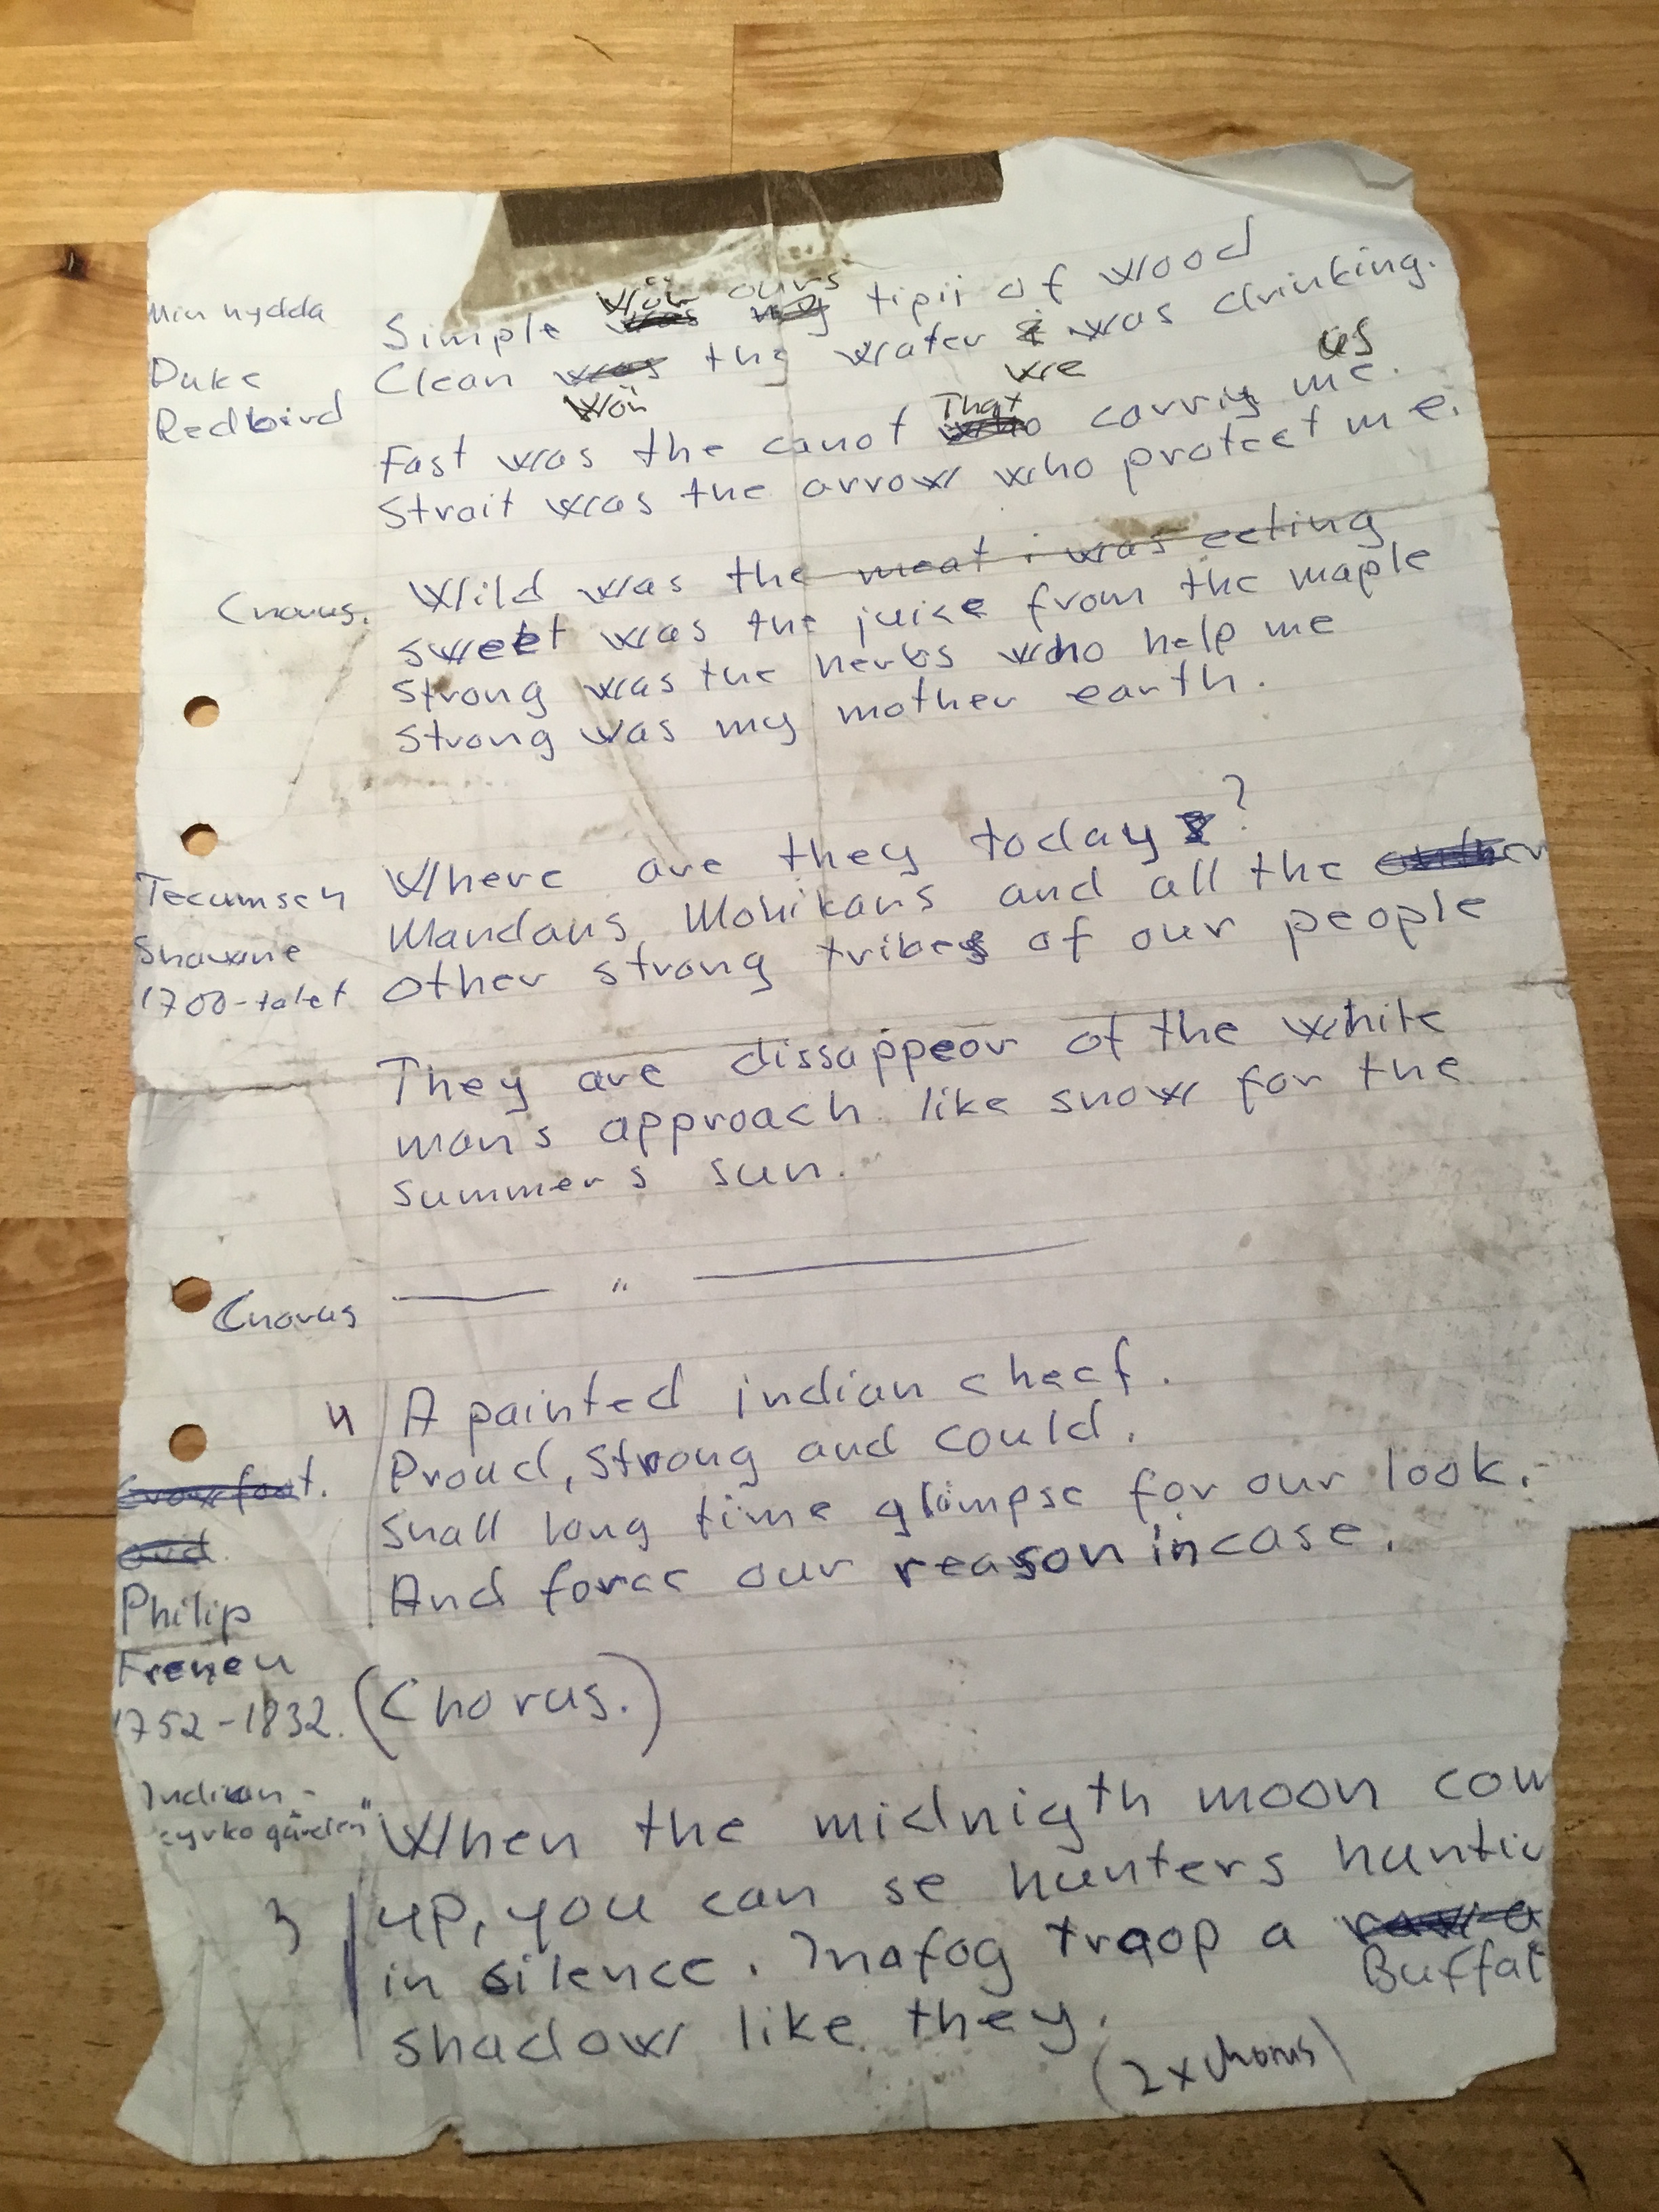 Min hydda
Duke
Redbird
wör ours
Simple was my tipii of wood
Clean was the water i was drinking.
Wör we us
That
Fast was the canot who carry me.
Strait was the arrow who protect me.
Chorus. Wild was the meat i was eeting
sweet was the juice from the maple
strong was the herbs who help me
strong was my mother earth.
Where are they today?
Tecumseh Mandans, Mohikans and all the
Shawne other strong tribes of our people
1700-talet
They are dissappear of the white
man's approach like snow for the
summer s sun.
Chorus — " —
4 A painted indian cheef.
Proud, strong and could.
Crowfoot. Shall long time glimpse for our look.
And force our reason in case.
Philip
Freneu
1752-1832. (Chorus.)
Indian-
cyrkogården" When the midnigth moon com
3 up, you can se hunters huntin
in silence. Inafog traop a
Buffal
shadow like they.
(2x chorus)